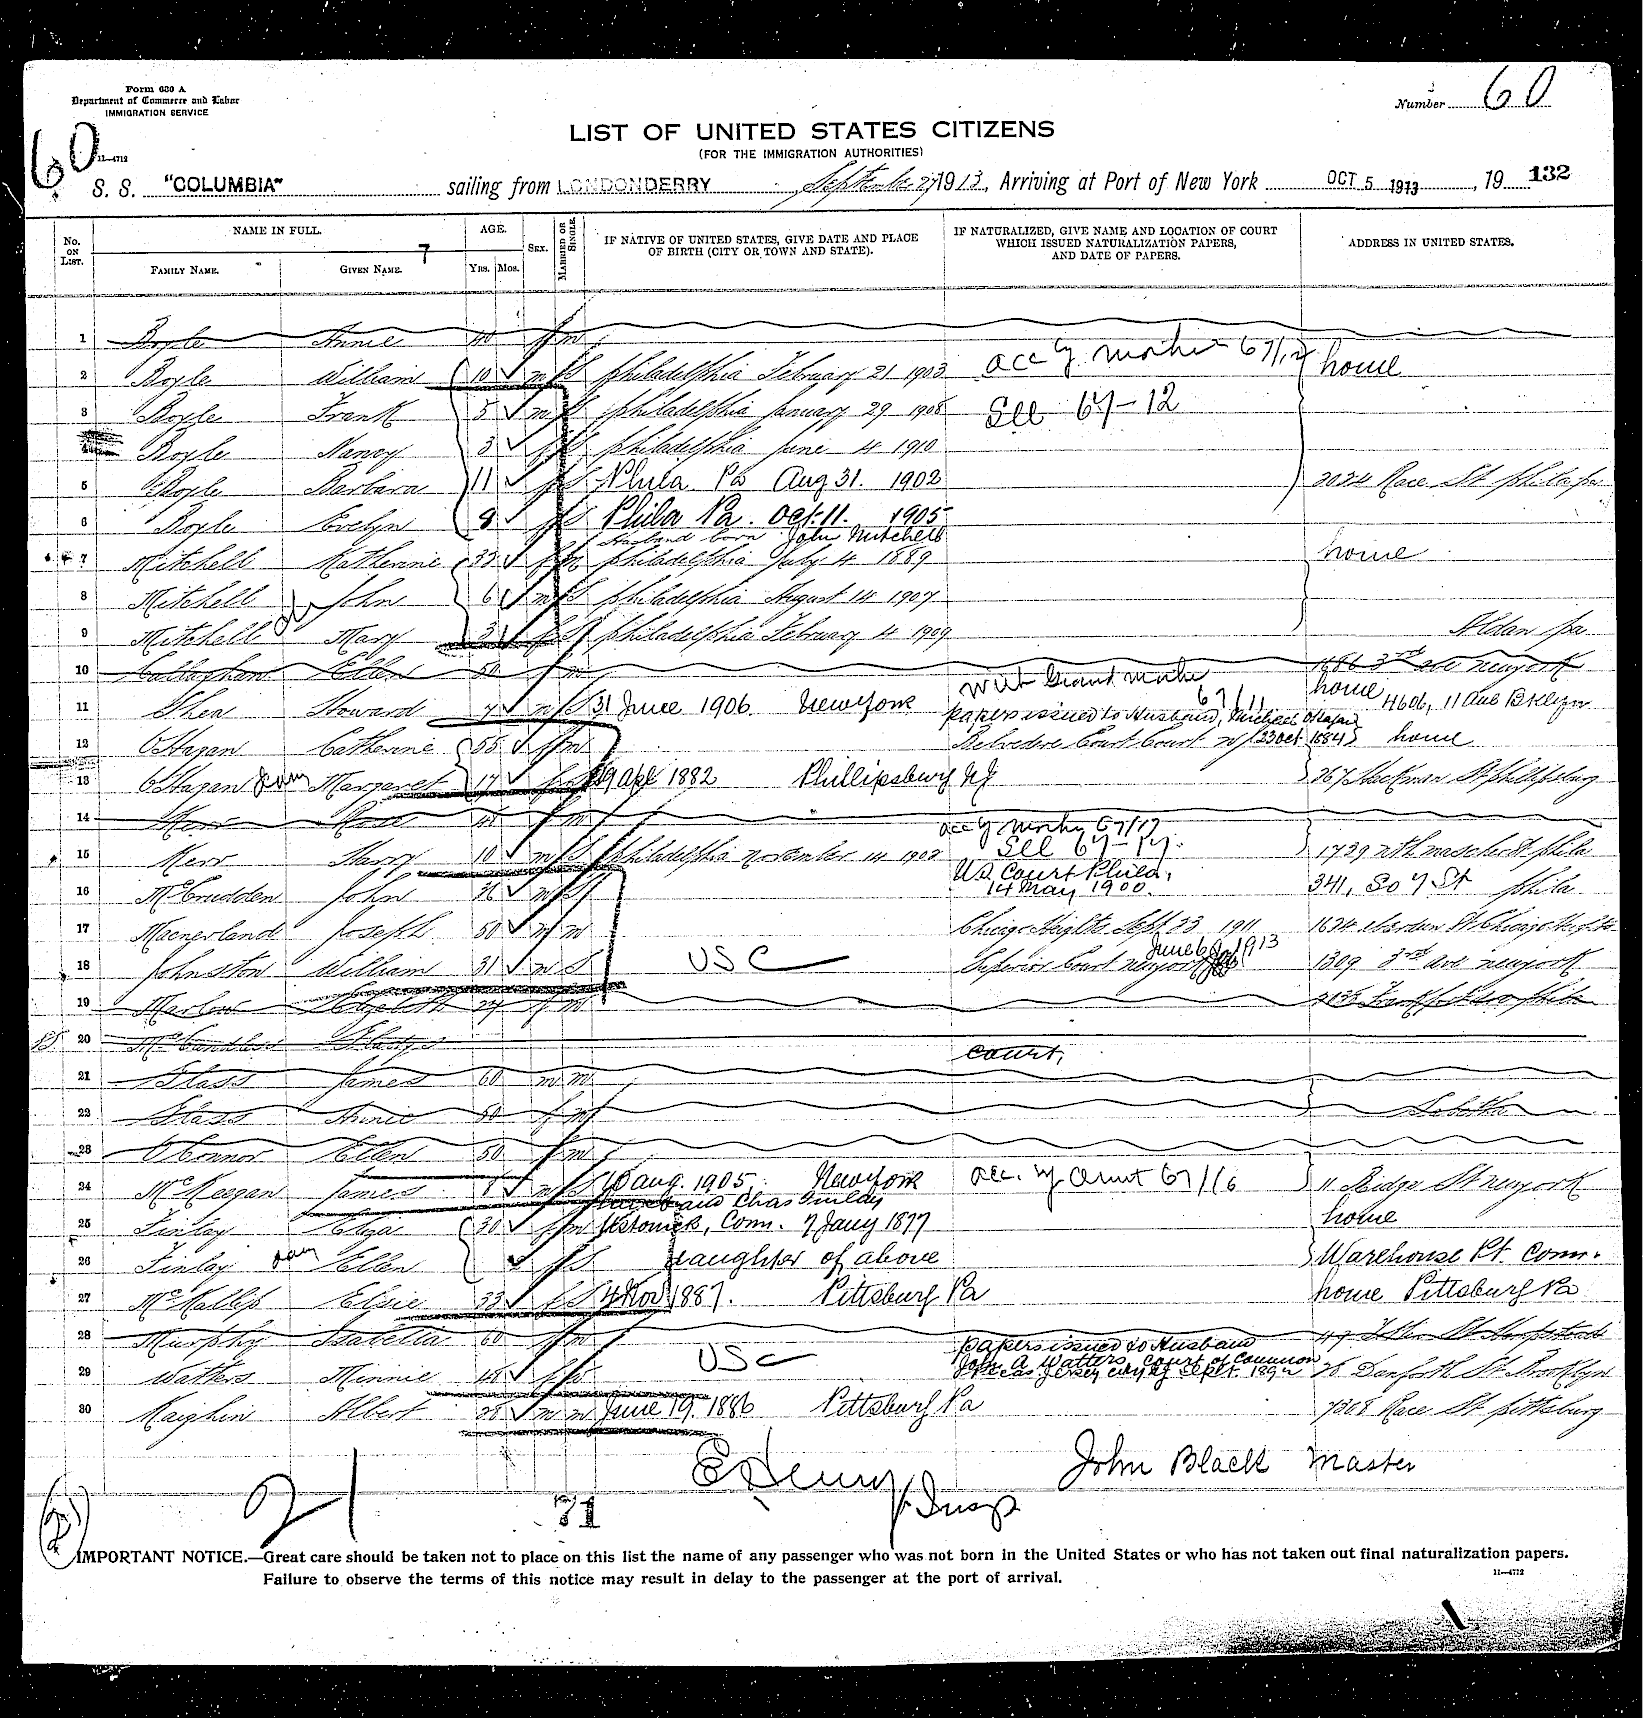 Form 630 A
Department of Commerce and Labor
IMMIGRATION SERVICE
Number 60
60
11—4712
LIST OF UNITED STATES CITIZENS
(FOR THE IMMIGRATION AUTHORITIES)
S. S. "COLUMBIA" sailing from LONDONDERRY September 27 1913, Arriving at Port of New York OCT 5 1913, 19 132
No. ON LIST. NAME IN FULL. AGE. SEX. MARRIED OR SINGLE. IF NATIVE OF UNITED STATES, GIVE DATE AND PLACE OF BIRTH (CITY OR TOWN AND STATE). IF NATURALIZED, GIVE NAME AND LOCATION OF COURT WHICH ISSUED NATURALIZATION PAPERS, AND DATE OF PAPERS. ADDRESS IN UNITED STATES.
FAMILY NAME. GIVEN NAME. YRS. MOS.
1 Boyle Annie 40 f m
2 Boyle William 10 m s Philadelphia February 21 1903 acc by mother 67/12 home
3 Boyle Frank 5 m s Philadelphia January 29 1908 See 67-12
4 Boyle Nancy 3 f s Philadelphia June 4 1910
5 Boyle Barbara 11 f s Phila Pa Aug 31. 1902 2024 Race St Phila pa
6 Boyle Evelyn 8 f s Phila Pa. Oct. 11. 1905
Husband born John Mitchell
7 Mitchell Katherine f m Philadelphia July 4 1889 home
8 Mitchell John 6 m s Philadelphia August 14 1907
9 Mitchell Mary 3 f s Philadelphia February 4 1909 Aldan pa
10 Callaghan Ellen 50 f m 3rd ave newyork
with Grand mother 67/11 home
11 Shea Howard 7 m s 31 June 1906 Newyork 4606, 11 Ave Bklyn
papers issued to Husband, Michael O'Hagan
12 O'Hagan Catherine 55 f m Belvedere Court NJ 23 Oct 1884 home
13 O'Hagan Margaret 17 f s 29 Apl 1882 Phillipsburg NJ 367 St Phillipsburg
14 Kerr f m
acc by Mother 67/17
15 Kerr Harry 10 m s Philadelphia november 14 1902 See 67-17. 1729 nth mascher St phila
16 McCrudden John m s US Court Phila, 14 May 1900. 341, So 7 St phila
17 Joseph 50 m m Chicago Hights Sept 23 1911 1634 St Chicago Hights
18 Johnston William 31 m s USC Superior Court newyork June 6 1913 1309 3rd Ave newyork
19 Marlow f m
20 Gladys
court,
21 Glass James 60 m m
22 Glass Annie 50 f m
23 O'Connor Ellen 50 f m
24 McKeegan James 8 m s 10 aug. 1905. Newyork acc. by Aunt 67/16 11 Ridge St newyork
Husband Chas Finlay
25 Finlay Eliza 30 f m Conn. 7 Jany 1877 home
26 Finlay Ellen f s daughter of above Warehouse Pt. Conn.
27 Elsie 33 f s 4 Nov 1887. Pittsburg Pa home Pittsburg Pa
28 Murphy Isabella 60 f m
papers issued to Husband
29 Watters Minnie 45 f USC John A Watters, Court of Common Pleas Jersey City NJ Sept. 1892 76 Danforth St Brooklyn
30 Albert m m June 19. 1886 Pittsburg Pa 7308 Race St pittsburg
John Black Master
21
71
IMPORTANT NOTICE.—Great care should be taken not to place on this list the name of any passenger who was not born in the United States or who has not taken out final naturalization papers.
Failure to observe the terms of this notice may result in delay to the passenger at the port of arrival.
11—4712